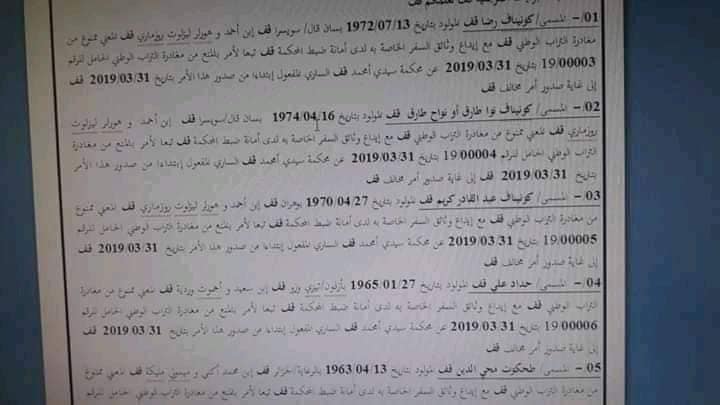 01/- المسمى/ كونيناف رضا قف المولود بتاريخ 1972/07/13 بسان قال/ سويسرا قف إبن أحمد و هورلر ليزلوت روزماري قف المعني ممنوع من
مغادرة التراب الوطني قف مع إيداع وثائق السفر الخاصة به لدى أمانة ضبط المحكمة قف تبعا لأمر بالمنع من مغادرة التراب الوطني الحامل للرقم
19/00003 بتاريخ 2019/03/31 عن محكمة سيدي أمحمد قف الساري المفعول إبتداءا من صدور هذا الأمر بتاريخ 2019/03/31 قف
إلى غاية صدور أمر مخالف قف
02/- المسمى/ كونيناف نوا طارق أو نواح طارق قف المولود بتاريخ 1974/04/16 بسان قال/سويسرا قف إبن أحمد و هورلر ليزلوت
روزماري قف المعني ممنوع من مغادرة التراب الوطني قف مع إيداع وثائق السفر الخاصة به لدى أمانة ضبط المحكمة قف تبعا لأمر بالمنع من مغادرة
التراب الوطني الحامل للرقم 19/00004 بتاريخ 2019/03/31 عن محكمة سيدي أمحمد قف الساري المفعول إبتداءا من صدور هذا الأمر
بتاريخ 2019/03/31 قف إلى غاية صدور أمر مخالف قف
03/- المسمى/ كونيناف عبد القادر كريم قف المولود بتاريخ 1970/04/27 بوهران قف إبن أحمد و هورلر ليزلوت روزماري قف المعني ممنوع
من مغادرة التراب الوطني قف مع إيداع وثائق السفر الخاصة به لدى أمانة ضبط المحكمة قف تبعا لأمر بالمنع من مغادرة التراب الوطني الحامل للرقم
19/00005 بتاريخ 2019/03/31 عن محكمة سيدي أمحمد قف الساري المفعول إبتداءا من صدور هذا الأمر بتاريخ 2019/03/31 قف
إلى غاية صدور أمر مخالف قف
04/- المسمى/ حداد علي قف المولود بتاريخ 1965/01/27 بأزفون/تيزي وزو قف إبن سعيد و وردية قف المعني ممنوع من مغادرة
التراب الوطني قف مع إيداع وثائق السفر الخاصة به لدى أمانة ضبط المحكمة قف تبعا لأمر بالمنع من مغادرة التراب الوطني الحامل للرقم
19/00006 بتاريخ 2019/03/31 عن محكمة سيدي أمحمد قف الساري المفعول إبتداءا من صدور هذا الأمر بتاريخ 2019/03/31 قف
إلى غاية صدور أمر مخالف قف
05/- المسمى/ طحكوت محي الدين قف المولود بتاريخ 1963/04/13 بالرغاية/الجزائر قف إبن محمد أكلي و ميموني مليكة قف المعني ممنوع
من مغادرة التراب الوطني قف مع إيداع وثائق السفر الخاصة به لدى أمانة ضبط المحكمة قف تبعا لأمر بالمنع من مغادرة التراب الوطني الحامل للرقم